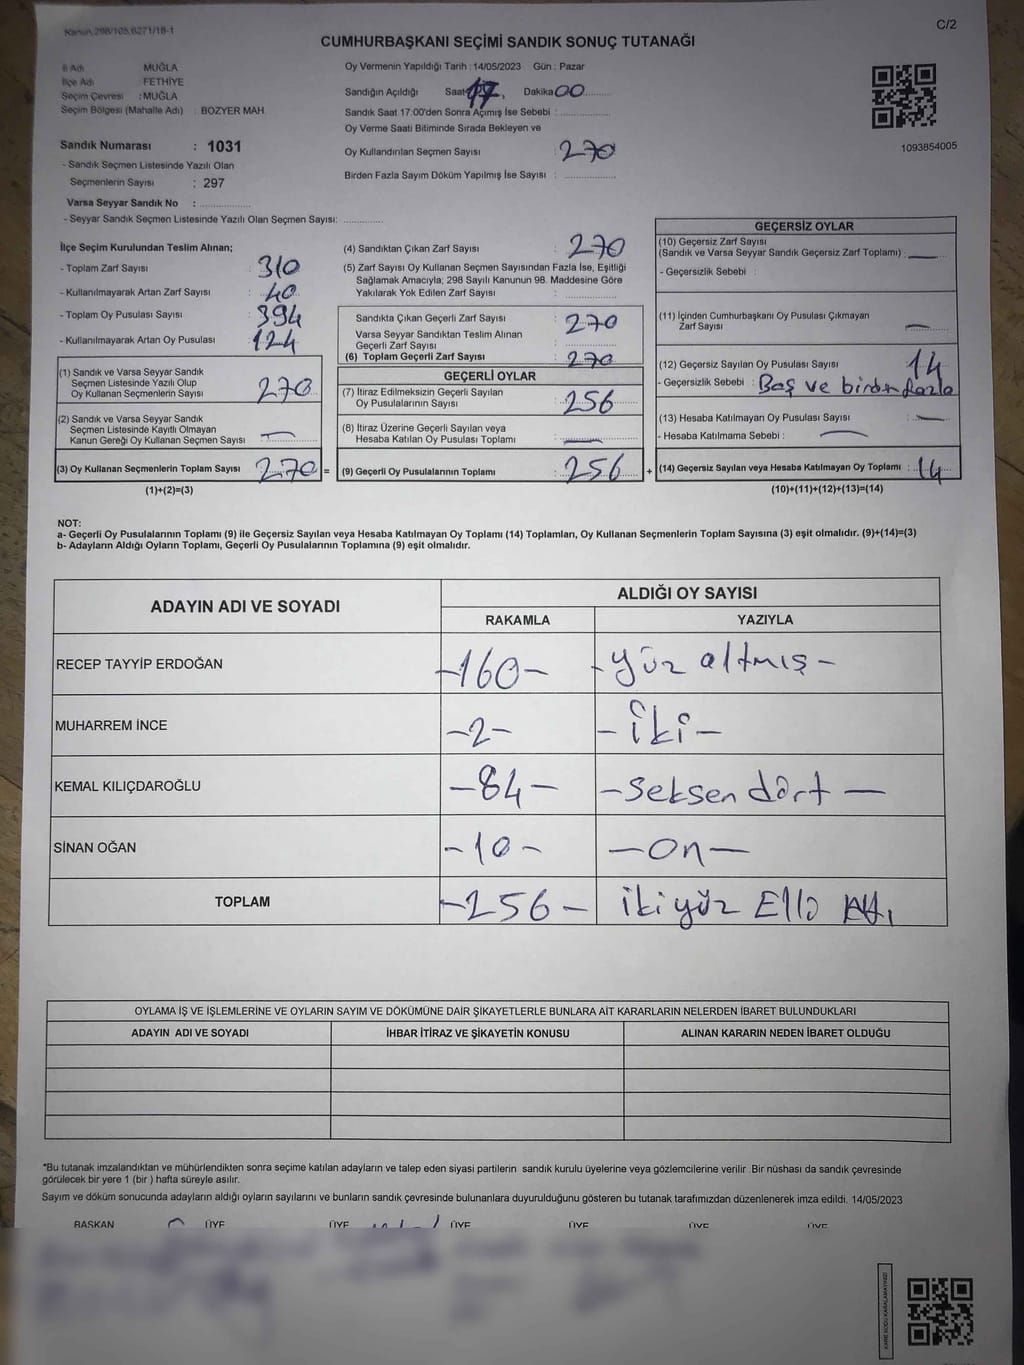 Kanun.298/105,6271/18-1
C/2
CUMHURBAŞKANI SEÇİMİ SANDIK SONUÇ TUTANAĞI
İl Adı MUĞLA
İlçe Adı : FETHİYE
Seçim Çevresi : MUĞLA
Seçim Bölgesi (Mahalle Adı) : BOZYER MAH.
Oy Vermenin Yapıldığı Tarih : 14/05/2023 Gün : Pazar
Sandığın Açıldığı Saat 17 Dakika 00
Sandık Saat 17:00'den Sonra Açımış İse Sebebi :
Oy Verme Saati Bitiminde Sırada Bekleyen ve
Oy Kullandırılan Seçmen Sayısı : 270
Birden Fazla Sayım Döküm Yapılmış İse Sayısı :
1093854005
Sandık Numarası : 1031
- Sandık Seçmen Listesinde Yazılı Olan
Seçmenlerin Sayısı : 297
Varsa Seyyar Sandık No :
- Seyyar Sandık Seçmen Listesinde Yazılı Olan Seçmen Sayısı:
İlçe Seçim Kurulundan Teslim Alınan;
- Toplam Zarf Sayısı : 310
- Kullanılmayarak Artan Zarf Sayısı : 40
- Toplam Oy Pusulası Sayısı : 394
- Kullanılmayarak Artan Oy Pusulası : 124
(1) Sandık ve Varsa Seyyar Sandık
Seçmen Listesinde Yazılı Olup
Oy Kullanan Seçmenlerin Sayısı : 270
(2) Sandık ve Varsa Seyyar Sandık
Seçmen Listesinde Kayıtlı Olmayan
Kanun Gereği Oy Kullanan Seçmen Sayısı : —
(3) Oy Kullanan Seçmenlerin Toplam Sayısı : 270 =
(1)+(2)=(3)
(4) Sandıktan Çıkan Zarf Sayısı : 270
(5) Zarf Sayısı Oy Kullanan Seçmen Sayısından Fazla İse, Eşitliği
Sağlamak Amacıyla; 298 Sayılı Kanunun 98. Maddesine Göre
Yakılarak Yok Edilen Zarf Sayısı :
Sandıkta Çıkan Geçerli Zarf Sayısı : 270
Varsa Seyyar Sandıktan Teslim Alınan
Geçerli Zarf Sayısı :
(6) Toplam Geçerli Zarf Sayısı : 270
GEÇERLİ OYLAR
(7) İtiraz Edilmeksizin Geçerli Sayılan
Oy Pusulalarının Sayısı : 256
(8) İtiraz Üzerine Geçerli Sayılan veya
Hesaba Katılan Oy Pusulası Toplamı : —
(9) Geçerli Oy Pusulalarının Toplamı : 256 +
GEÇERSİZ OYLAR
(10) Geçersiz Zarf Sayısı
(Sandık ve Varsa Seyyar Sandık Geçersiz Zarf Toplamı) : —
- Geçersizlik Sebebi :
(11) İçinden Cumhurbaşkanı Oy Pusulası Çıkmayan
Zarf Sayısı : —
(12) Geçersiz Sayılan Oy Pusulası Sayısı : 14
- Geçersizlik Sebebi : Boş ve birden fazla
(13) Hesaba Katılmayan Oy Pusulası Sayısı : —
- Hesaba Katılmama Sebebi : —
(14) Geçersiz Sayılan veya Hesaba Katılmayan Oy Toplamı : 14
(10)+(11)+(12)+(13)=(14)
NOT:
a- Geçerli Oy Pusulalarının Toplamı (9) ile Geçersiz Sayılan veya Hesaba Katılmayan Oy Toplamı (14) Toplamları, Oy Kullanan Seçmenlerin Toplam Sayısına (3) eşit olmalıdır. (9)+(14)=(3)
b- Adayların Aldığı Oyların Toplamı, Geçerli Oy Pusulalarının Toplamına (9) eşit olmalıdır.
ADAYIN ADI VE SOYADI
ALDIĞI OY SAYISI
RAKAMLA YAZIYLA
RECEP TAYYİP ERDOĞAN -160- -yüz altmış-
MUHARREM İNCE -2- -İki-
KEMAL KILIÇDAROĞLU -84- -Seksen dört-
SİNAN OĞAN -10- -On-
TOPLAM -256- ikiyüz Elli Altı
OYLAMA İŞ VE İŞLEMLERİNE VE OYLARIN SAYIM VE DÖKÜMÜNE DAİR ŞİKAYETLERLE BUNLARA AİT KARARLARIN NELERDEN İBARET BULUNDUKLARI
ADAYIN ADI VE SOYADI İHBAR İTİRAZ VE ŞİKAYETİN KONUSU ALINAN KARARIN NEDEN İBARET OLDUĞU
*Bu tutanak imzalandıktan ve mühürlendikten sonra seçime katılan adayların ve talep eden siyasi partilerin sandık kurulu üyelerine veya gözlemcilerine verilir .Bir nüshası da sandık çevresinde
görülecek bir yere 1 (bir ) hafta süreyle asılır.
Sayım ve döküm sonucunda adayların aldığı oyların sayılarını ve bunların sandık çevresinde bulunanlara duyurulduğunu gösteren bu tutanak tarafımızdan düzenlenerek imza edildi. 14/05/2023
BAŞKAN ÜYE ÜYE ÜYE ÜYE ÜYE ÜYE
KARE KODU KARALAMAYINIZ!